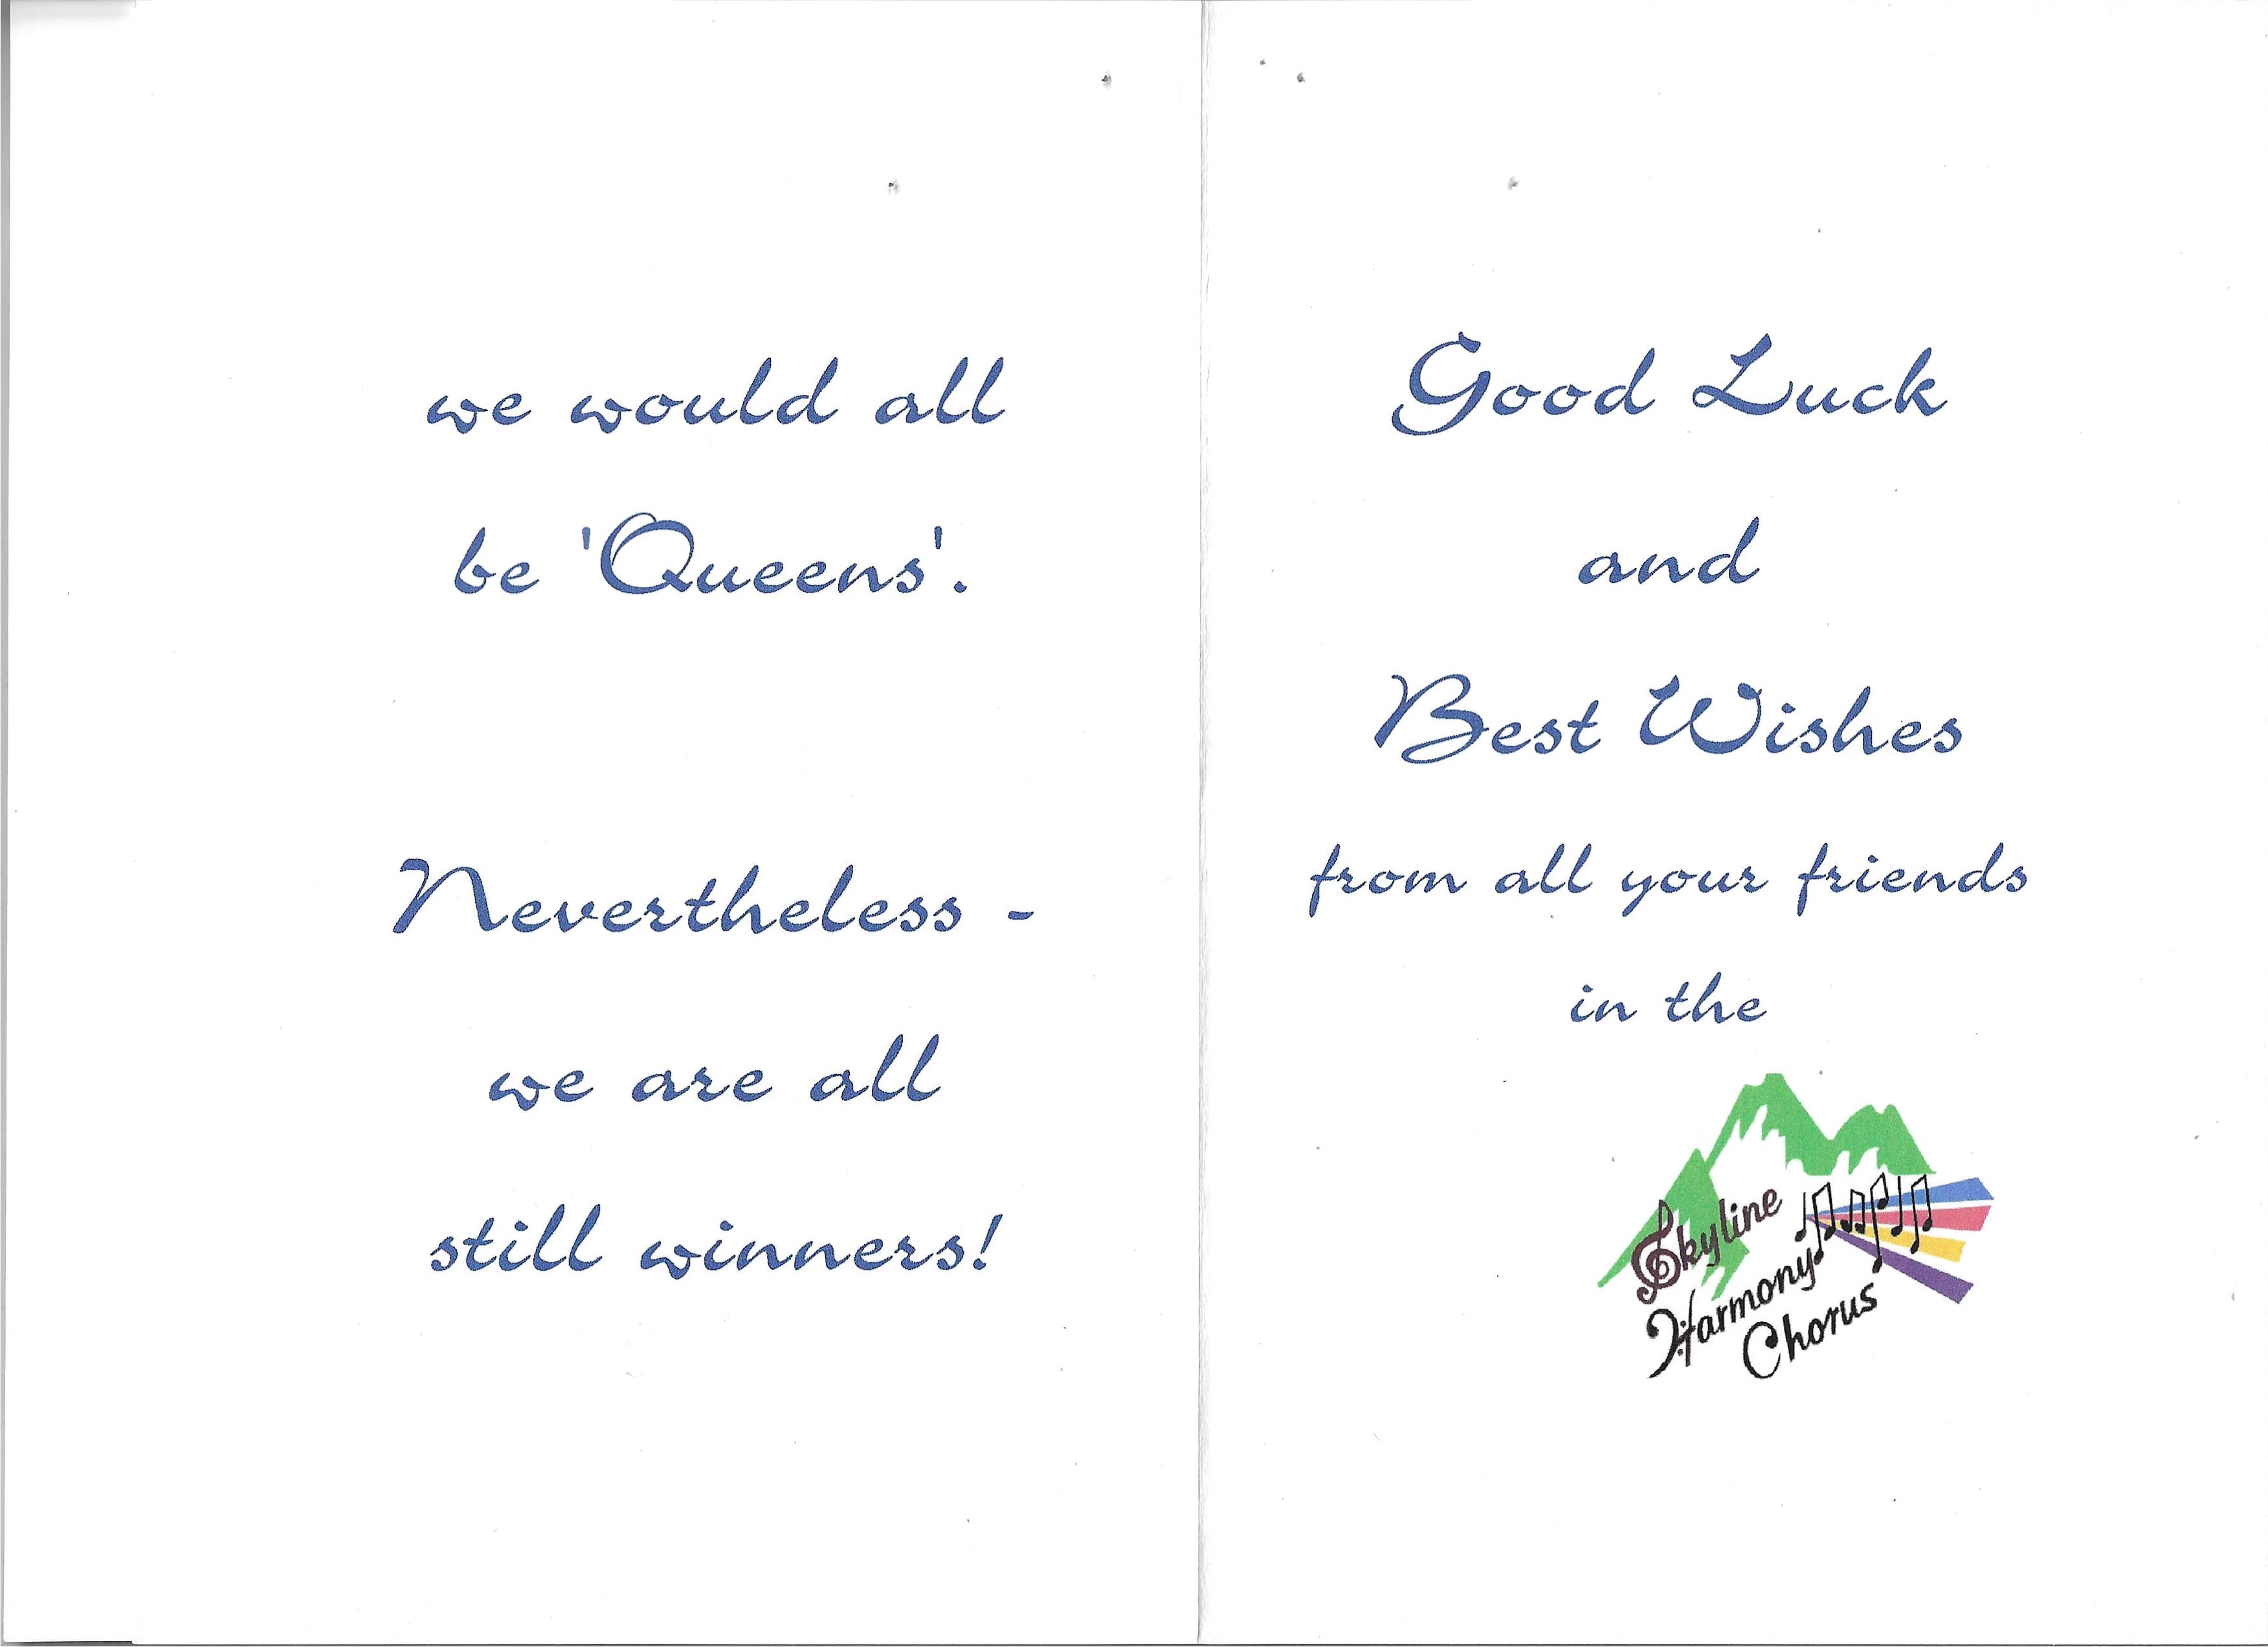 we would all
be 'Queens'.
Nevertheless -
we are all
still winners!
Good Luck
and
Best Wishes
from all your friends
in the
Skyline
Harmony
Chorus